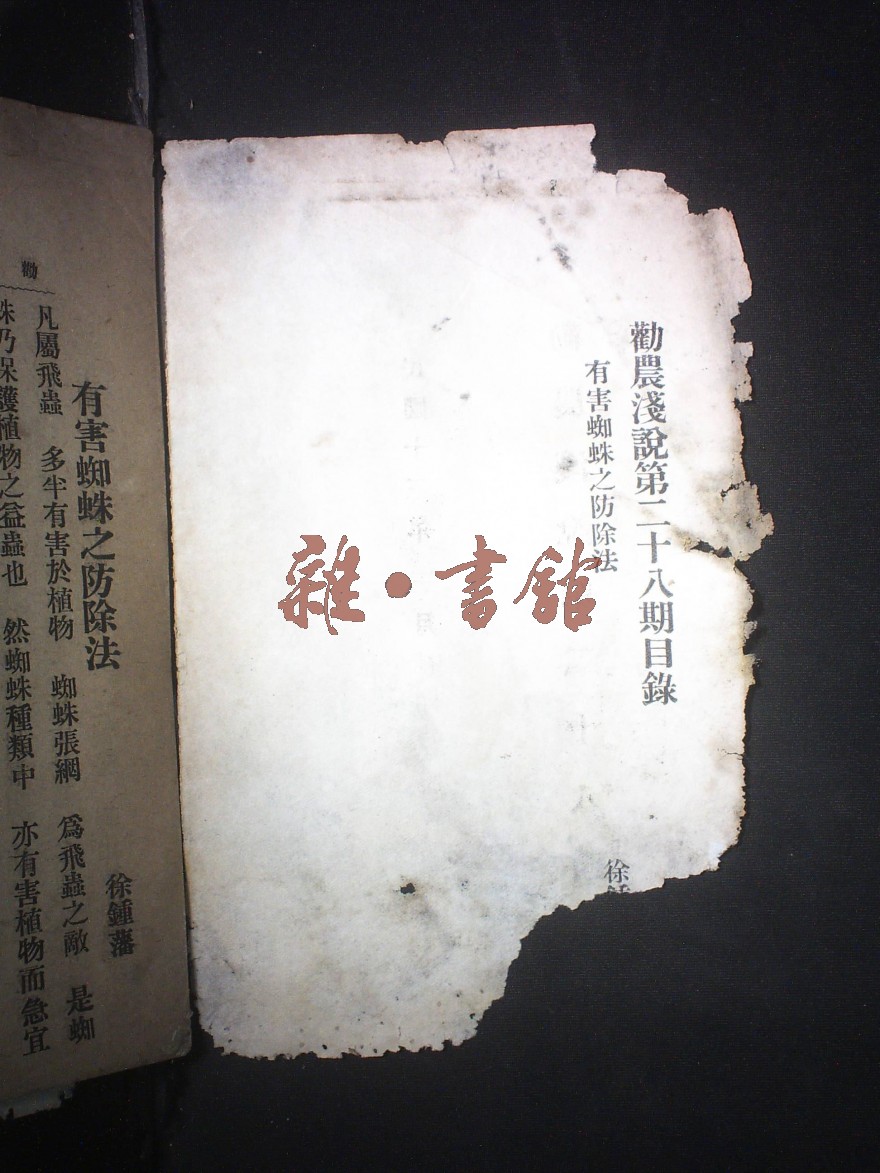 勸農淺說第二十八期目錄
有害蜘蛛之防除法
徐鍾
雜·書館
有害蜘蛛之防除法
徐鍾藩
凡屬飛蟲 多半有害於植物 蜘蛛張網 爲飛蟲之敵 是蜘
蛛乃保護植物之益蟲也 然蜘蛛種類中 亦有害植物而急宜
勸